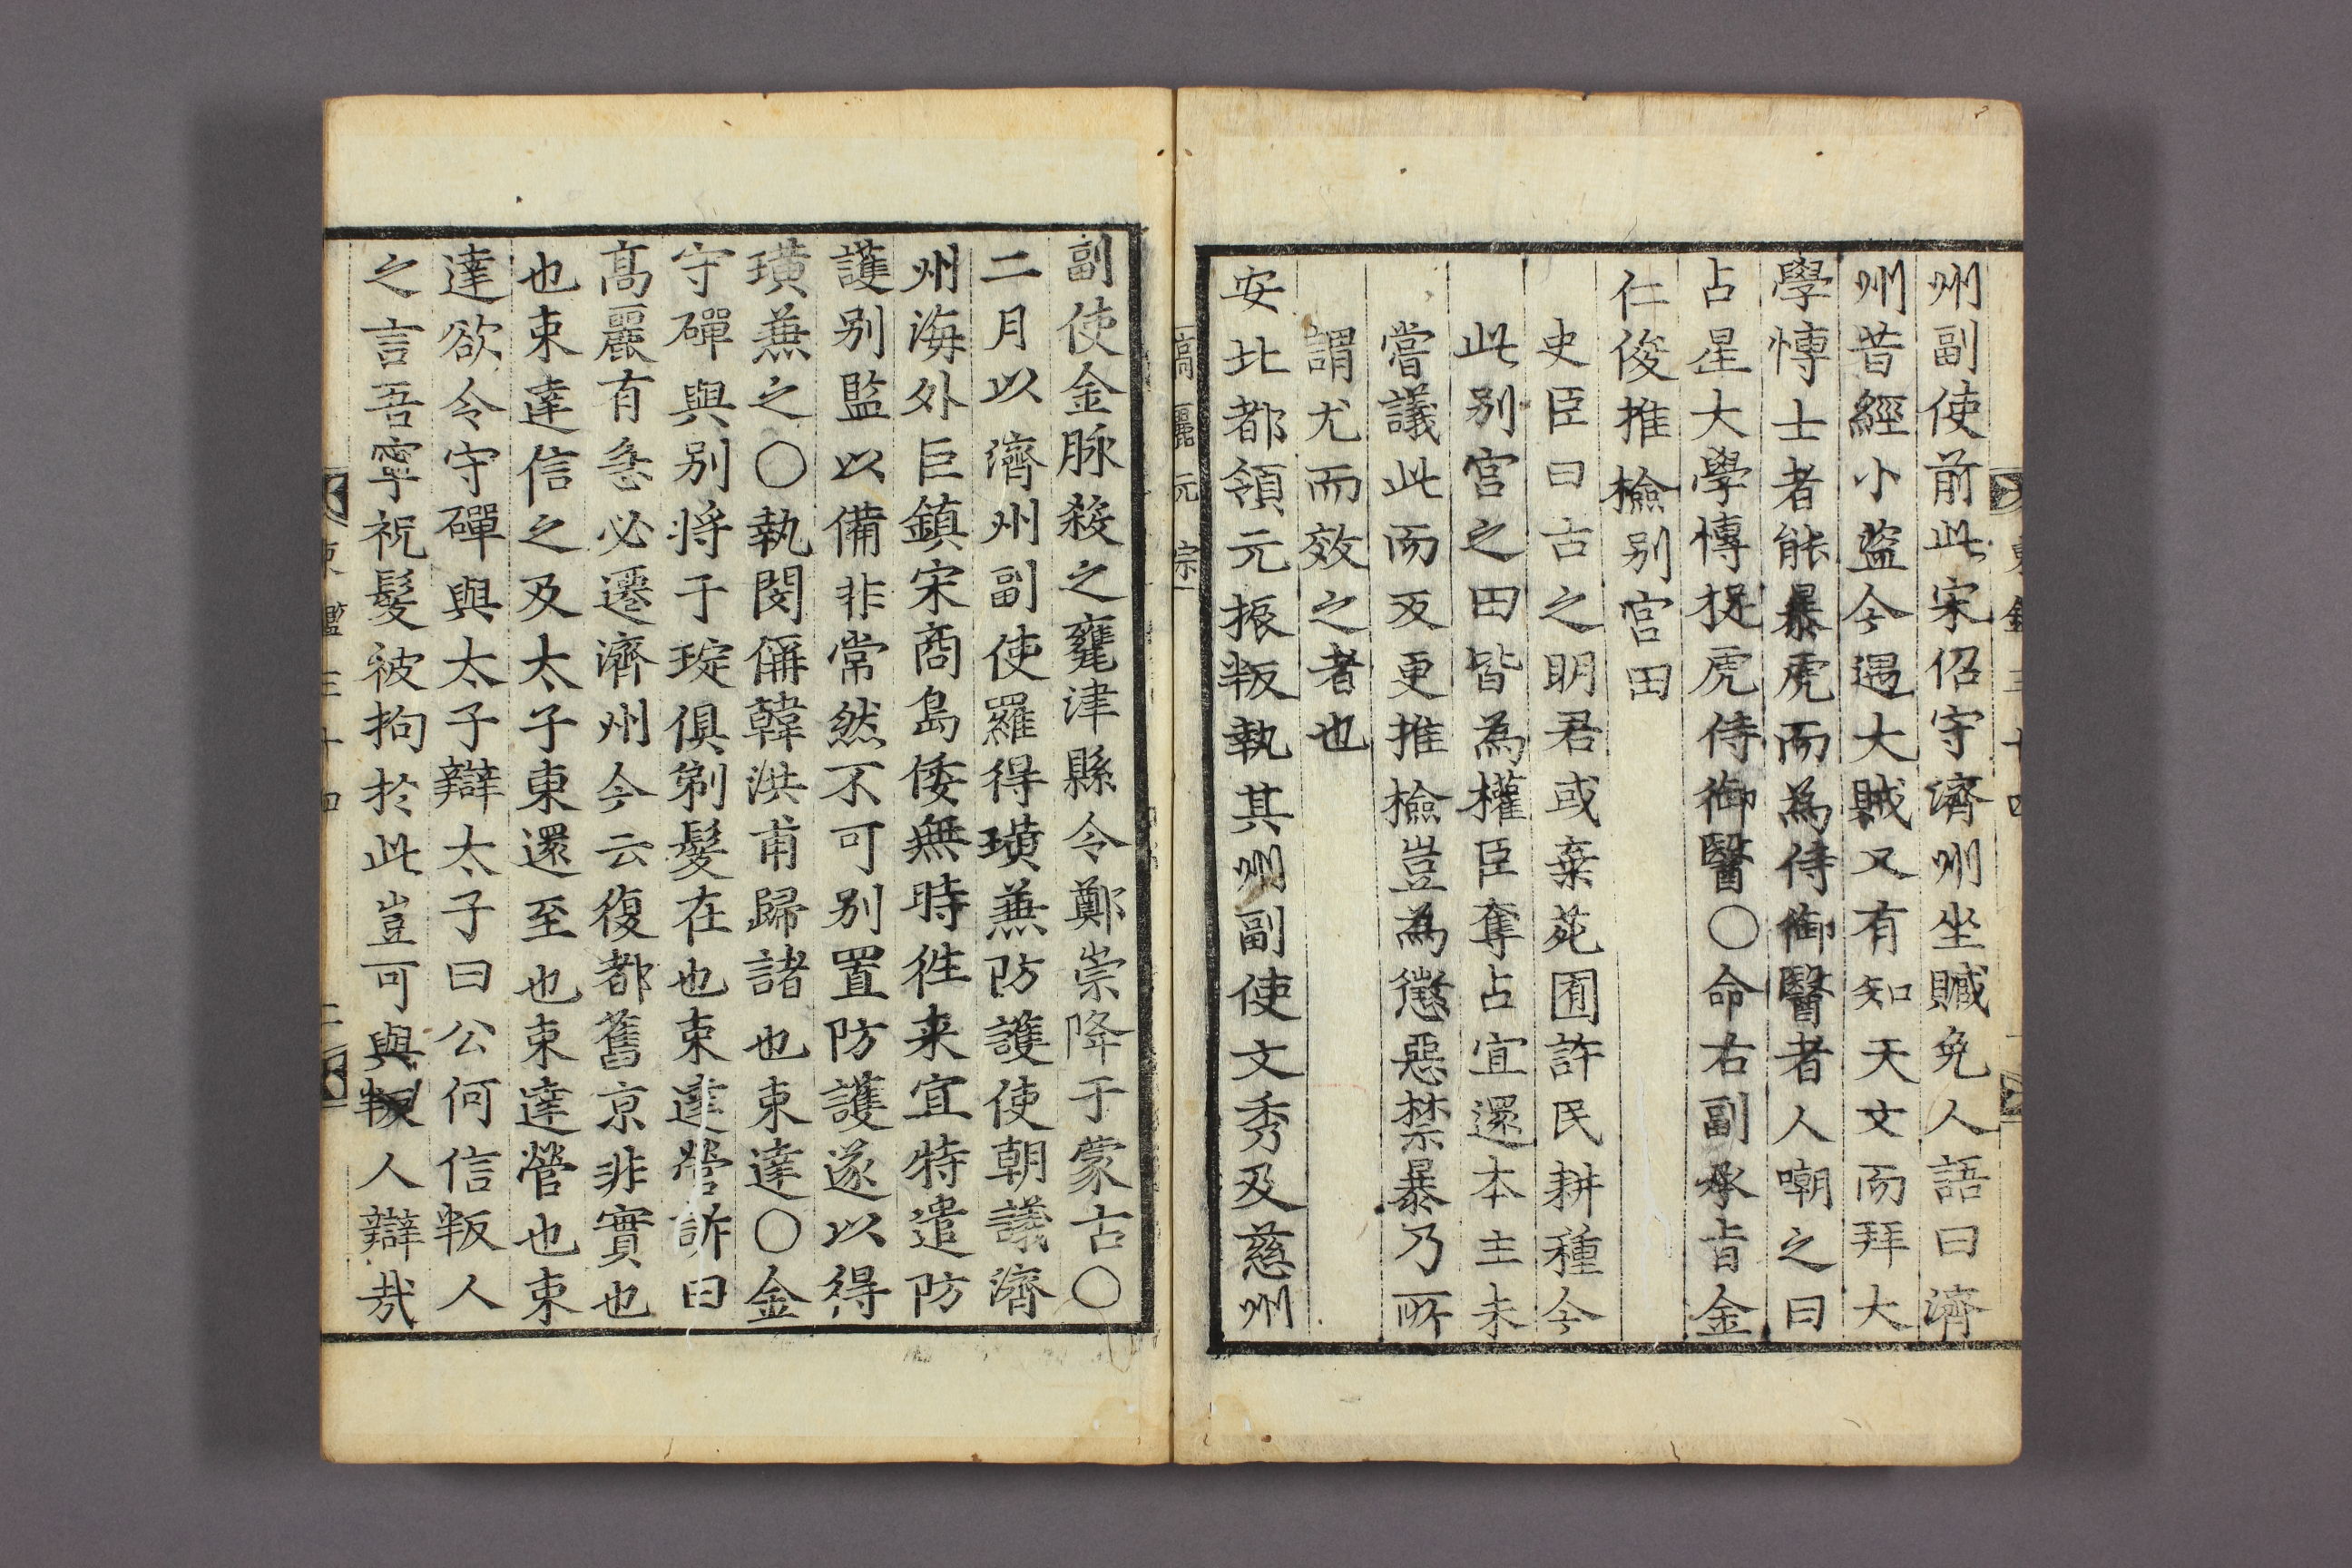 州副使前此宋佋守濟州坐贓免人語曰濟
州昔經小盜今遇大賊又有知天文而拜大
學博士者能暴虎而為侍御醫者人嘲之曰
占星大學博捉虎侍御醫〇命右副承旨金
仁俊推檢别宮田
史臣曰古之明君或棄苑囿許民耕種今
此别宮之田皆為權臣奪占宜還本主未
嘗議此而反更推檢豈為懲惡禁暴乃所
謂尤而效之者也
安北都領元振叛執其州副使文秀及慈州
高麗元宗
副使金脉殺之甕津縣令鄭崇降于蒙古〇
二月以濟州副使羅得璜兼防護使朝議濟
州海外巨鎮宋商島倭無時徃来宜特遣防
護别監以備非常然不可别置防護遂以得
璜兼之〇執閔偋韓洪甫歸諸也束達〇金
守磾與别将于琔俱剃髮在也束達營訴曰
髙麗有急必遷濟州今云復都舊京非實也
也束達信之及太子東還至也束達營也束
達欲令守磾與太子辯太子曰公何信叛人
之言吾寧祝髮被拘於此豈可與叛人辯㢤
東鑑三十四